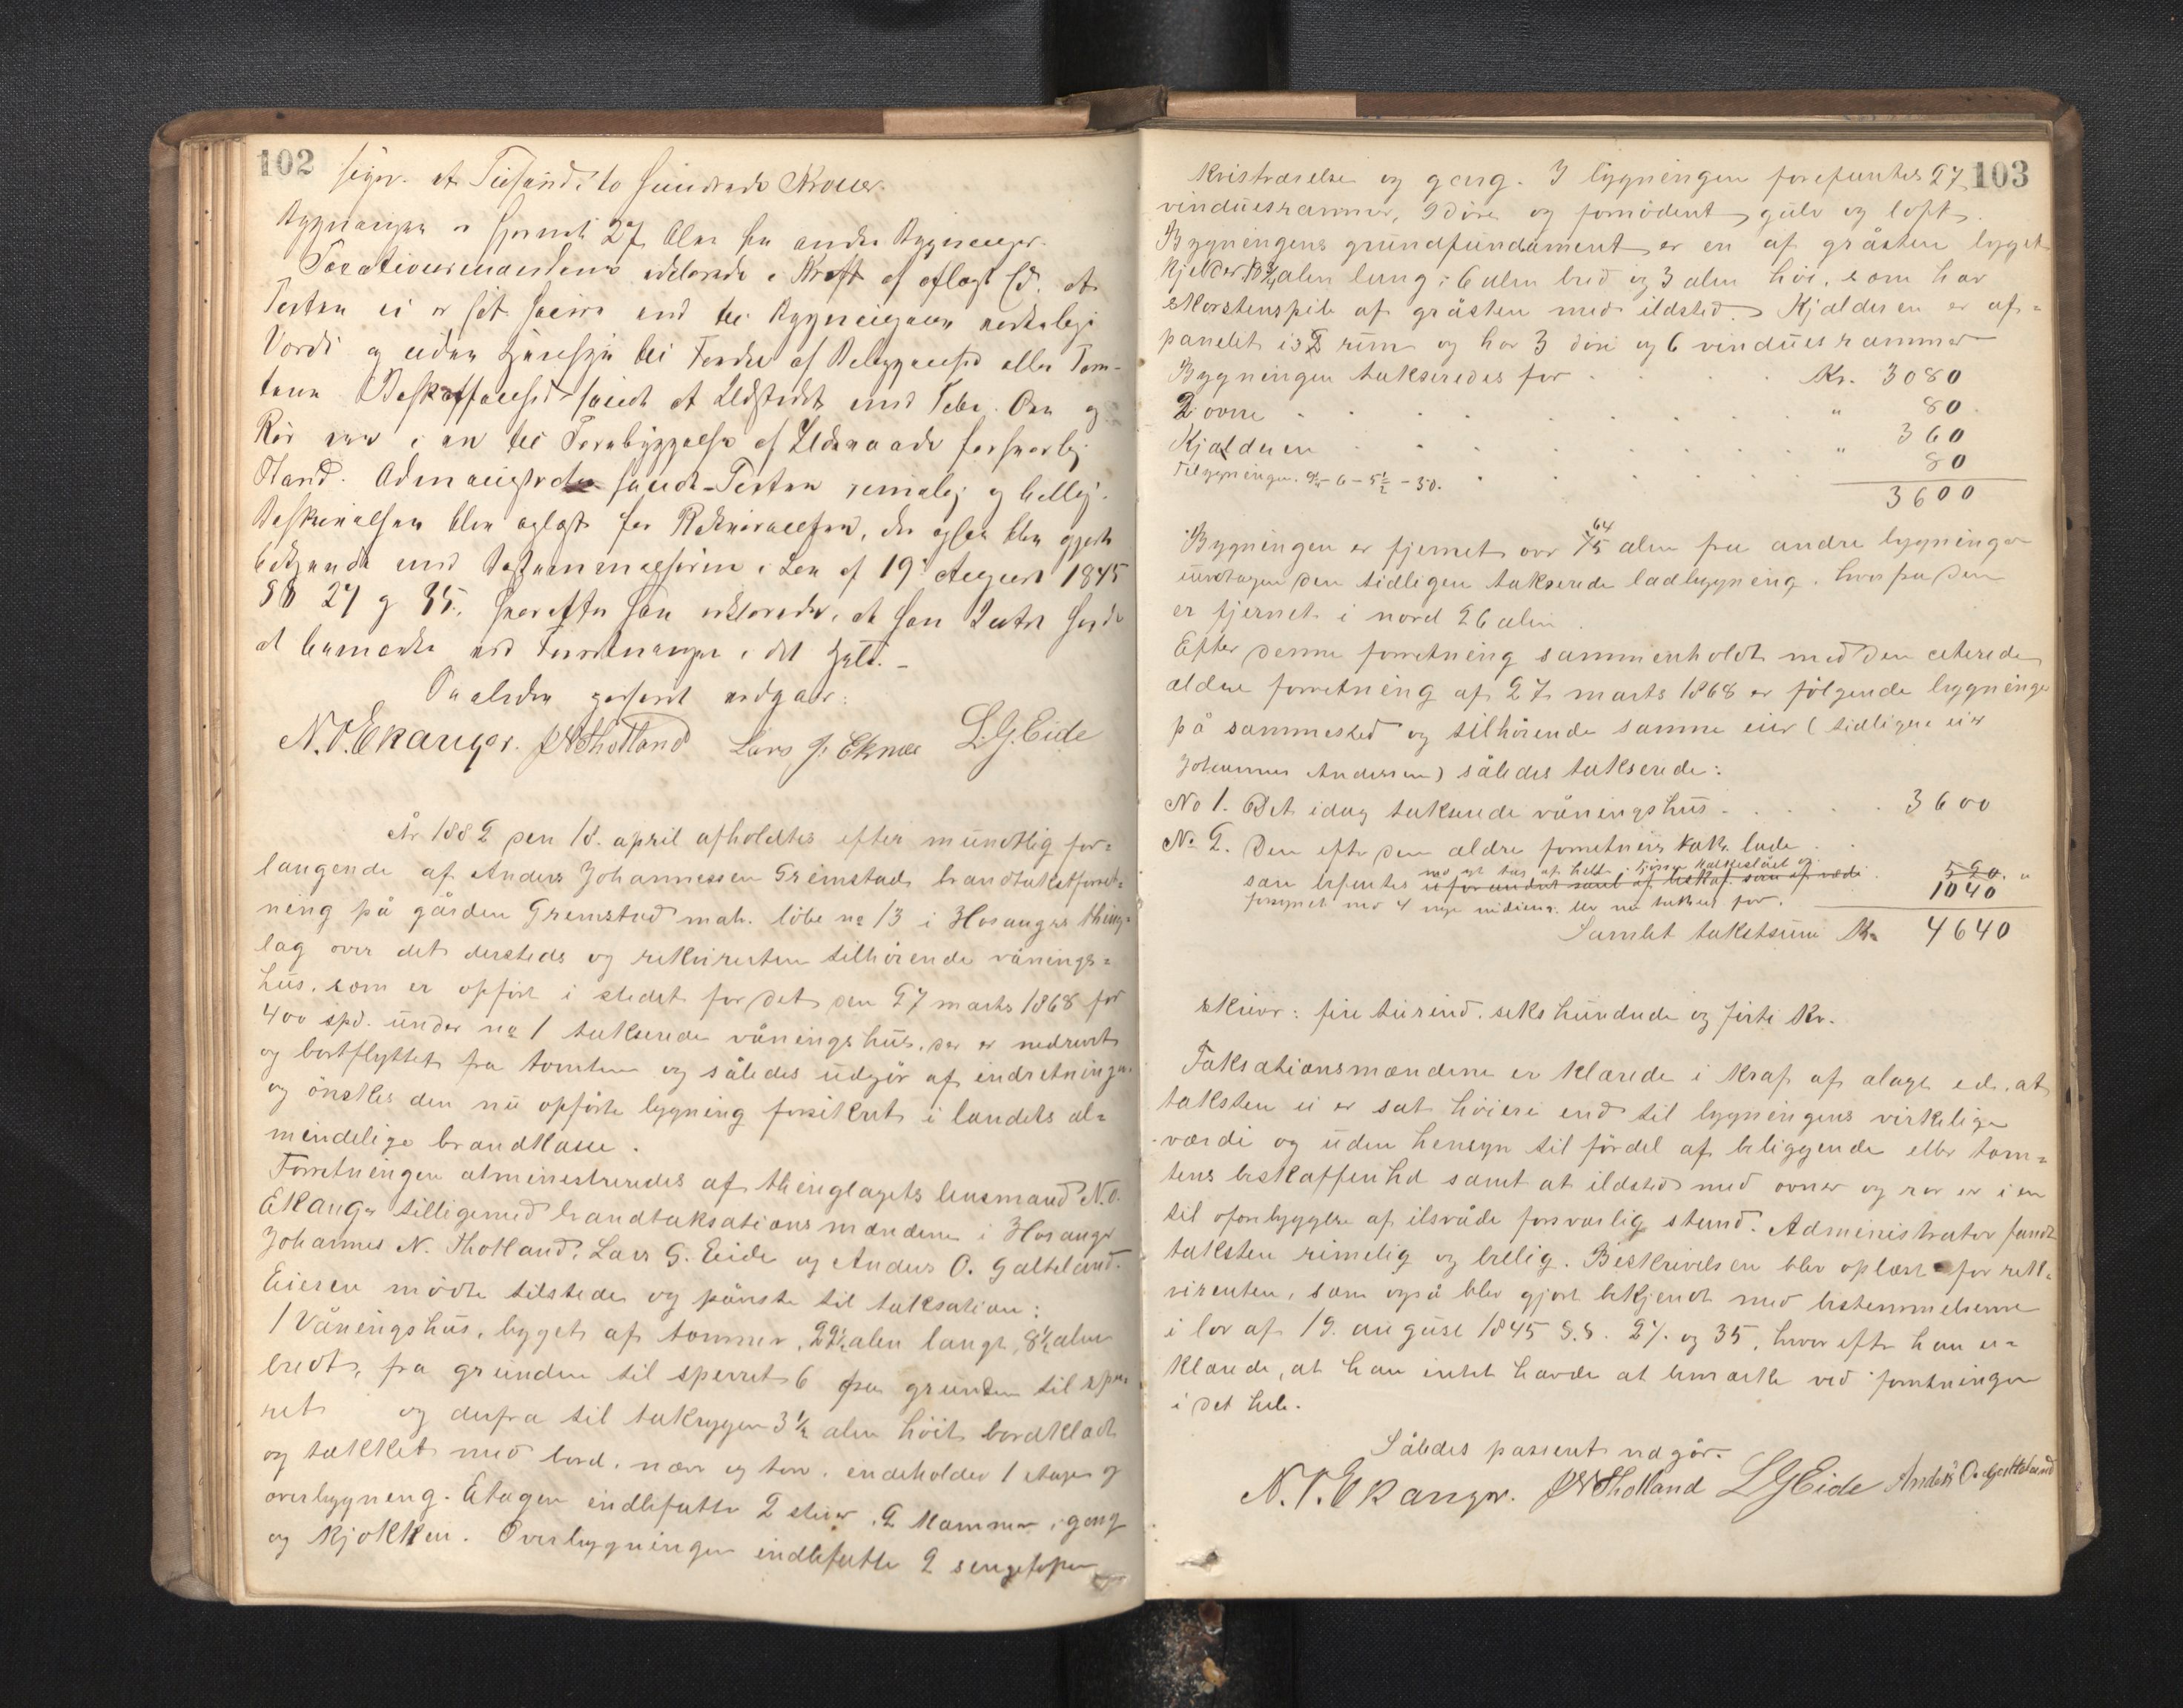 102
siger et Tusend to Hundrede Kroner.
Bygningen er fjernet 27 Alen fra andre Bygninger.
Taxationsmændene erklærede i Kraft af aflagt Ed, at
Taxten ei er sat høiere end til Bygningens virkelige
Værdi og uden Hensyn til Fordel af Beliggenhed eller Tom-
tens Beskaffenhed samt at Ildstedet med Pibe, Ovn og
Rör var i en til Forebyggelse af Ildsvaade forsvarlig
Stand. Administrator fandt Taxten rimelig og billig.
Beskrivelsen blev oplæst for Rekvirenten, der ogsaa blev gjort
bekjendt med Bestemmelserne i Lov af 19 August 1845
§§ 27 og 35, hvorefter han erklærede, at han Intet havde
at bemærke ved Forretningen i det Hele. -
Saaledes passeret vedgaar:
N. O. Ekanger. JNTholland Lars J. Eknæs L. G. Eide
År 1882 den 18. april afholdtes efter mündtlig for=
langende af Anders Johannessen Gremstad brandtakstforret=
ning på gården Gremstad mat. löbe no 13 i Hosangers thing=
lag over det dersteds og rekvirenten tilhörende vånings=
hüs, som er opfört i stedet for det den 27 marts 1868 for
400 spd. ünder no 1 takserede våningshüs, der er nedrevet
og bortflyttet fra tomten og således üdgår af indretningen
og önskes den nü opförte bygning forsikret i landets al=
mindelige brandkasse.
Forretningen atministreredes af thinglagets lensmand N. O.
Ekanger tilligemed brandtaksationsmændene i Hosanger
Johannes N. Tholland, Lars G. Eide og Anders O. Galteland.
Eieren mödte tilstede og påviste til taksation:
1 Våningshüs, bygget af tömmer, 22½ alen langt, 8½ alen
bredt, fra gründen til sperret 6 fra grunden til sper
ret og derfra til takryggen 3½ alen höit, bordklædt
og tækket med bord, næver og torv, indeholder 1 etage og
overbygning. Etagen indbefatter 2 stuer, 2 kammer, gang
og kjökken. Overbygningen indbefatter 2 senge
103
kvistværelse og gang. I bygningen forefantes 27
vindüesrammer, 9 döre og fornödent gülv og loft.
Bygningens gründfündament er en af gråsten bygget
kjelder alen lang, 6 alen bred og 3 alen höi, som har
skorstenspibe af gråsten med ildsted. Kjælderen er af=
panelet i rüm og har 3 döre og 6 vindüesrammer
Bygningen takseredes for . . . . Kr. 3080
2 ovne . . . . " 80
Kjælderen . . . . " 360
Tilbygningen . . . 80
3600
Bygningen er fjernet over 64 75 alen fra andre bygninger
ündtagen den tidligere takserede ladbygning, hvorfra den
er fjernet i nord 26 alen.
Efter denne forretning sammenholdt med den citerede
ældre forretning af 27 marts 1868 er fölgende bygninger
på sammested og tilhörende samme eier (tidligere eier
Johannes Andersen) således takserede:
No 1. Det idag takserede våningshüs . . . . 3600
No 2. Den efter den ældre forretning taks. lade . .
som befantes 520. "
forsynet med 4 nye der nu takseres for. 1040
Samlet takstsüm Kr 4640
skriver: fire tüsind, seks hündrede og firti Kr.
Taksationsmændene erklærede i kraft af alagt ed, at
taksten ei er sat höiere end til bygningens virkelige
værdi og üden hensyn til fördel af beliggende eller tom=
tens beskaffenhed samt at ildsted med ovner og rör er i en
til oforebyggelse af ilsvåde forsvarlig stand. Administrator fandt
taksten rimelig og billig. Beskrivelsen blev oplæst for rek=
virenten, som også blev gjort bekjendt med bestemmelserne
i lov af 19. augüst 1845 §.§. 27. og 35, hvorefter han er=
klærede, at han intet havde at bemærke ved forretningen
i det hele.
Således passeret vedgår.
N. O. Ekanger. JNTholland LGEide Anders O. Galteland